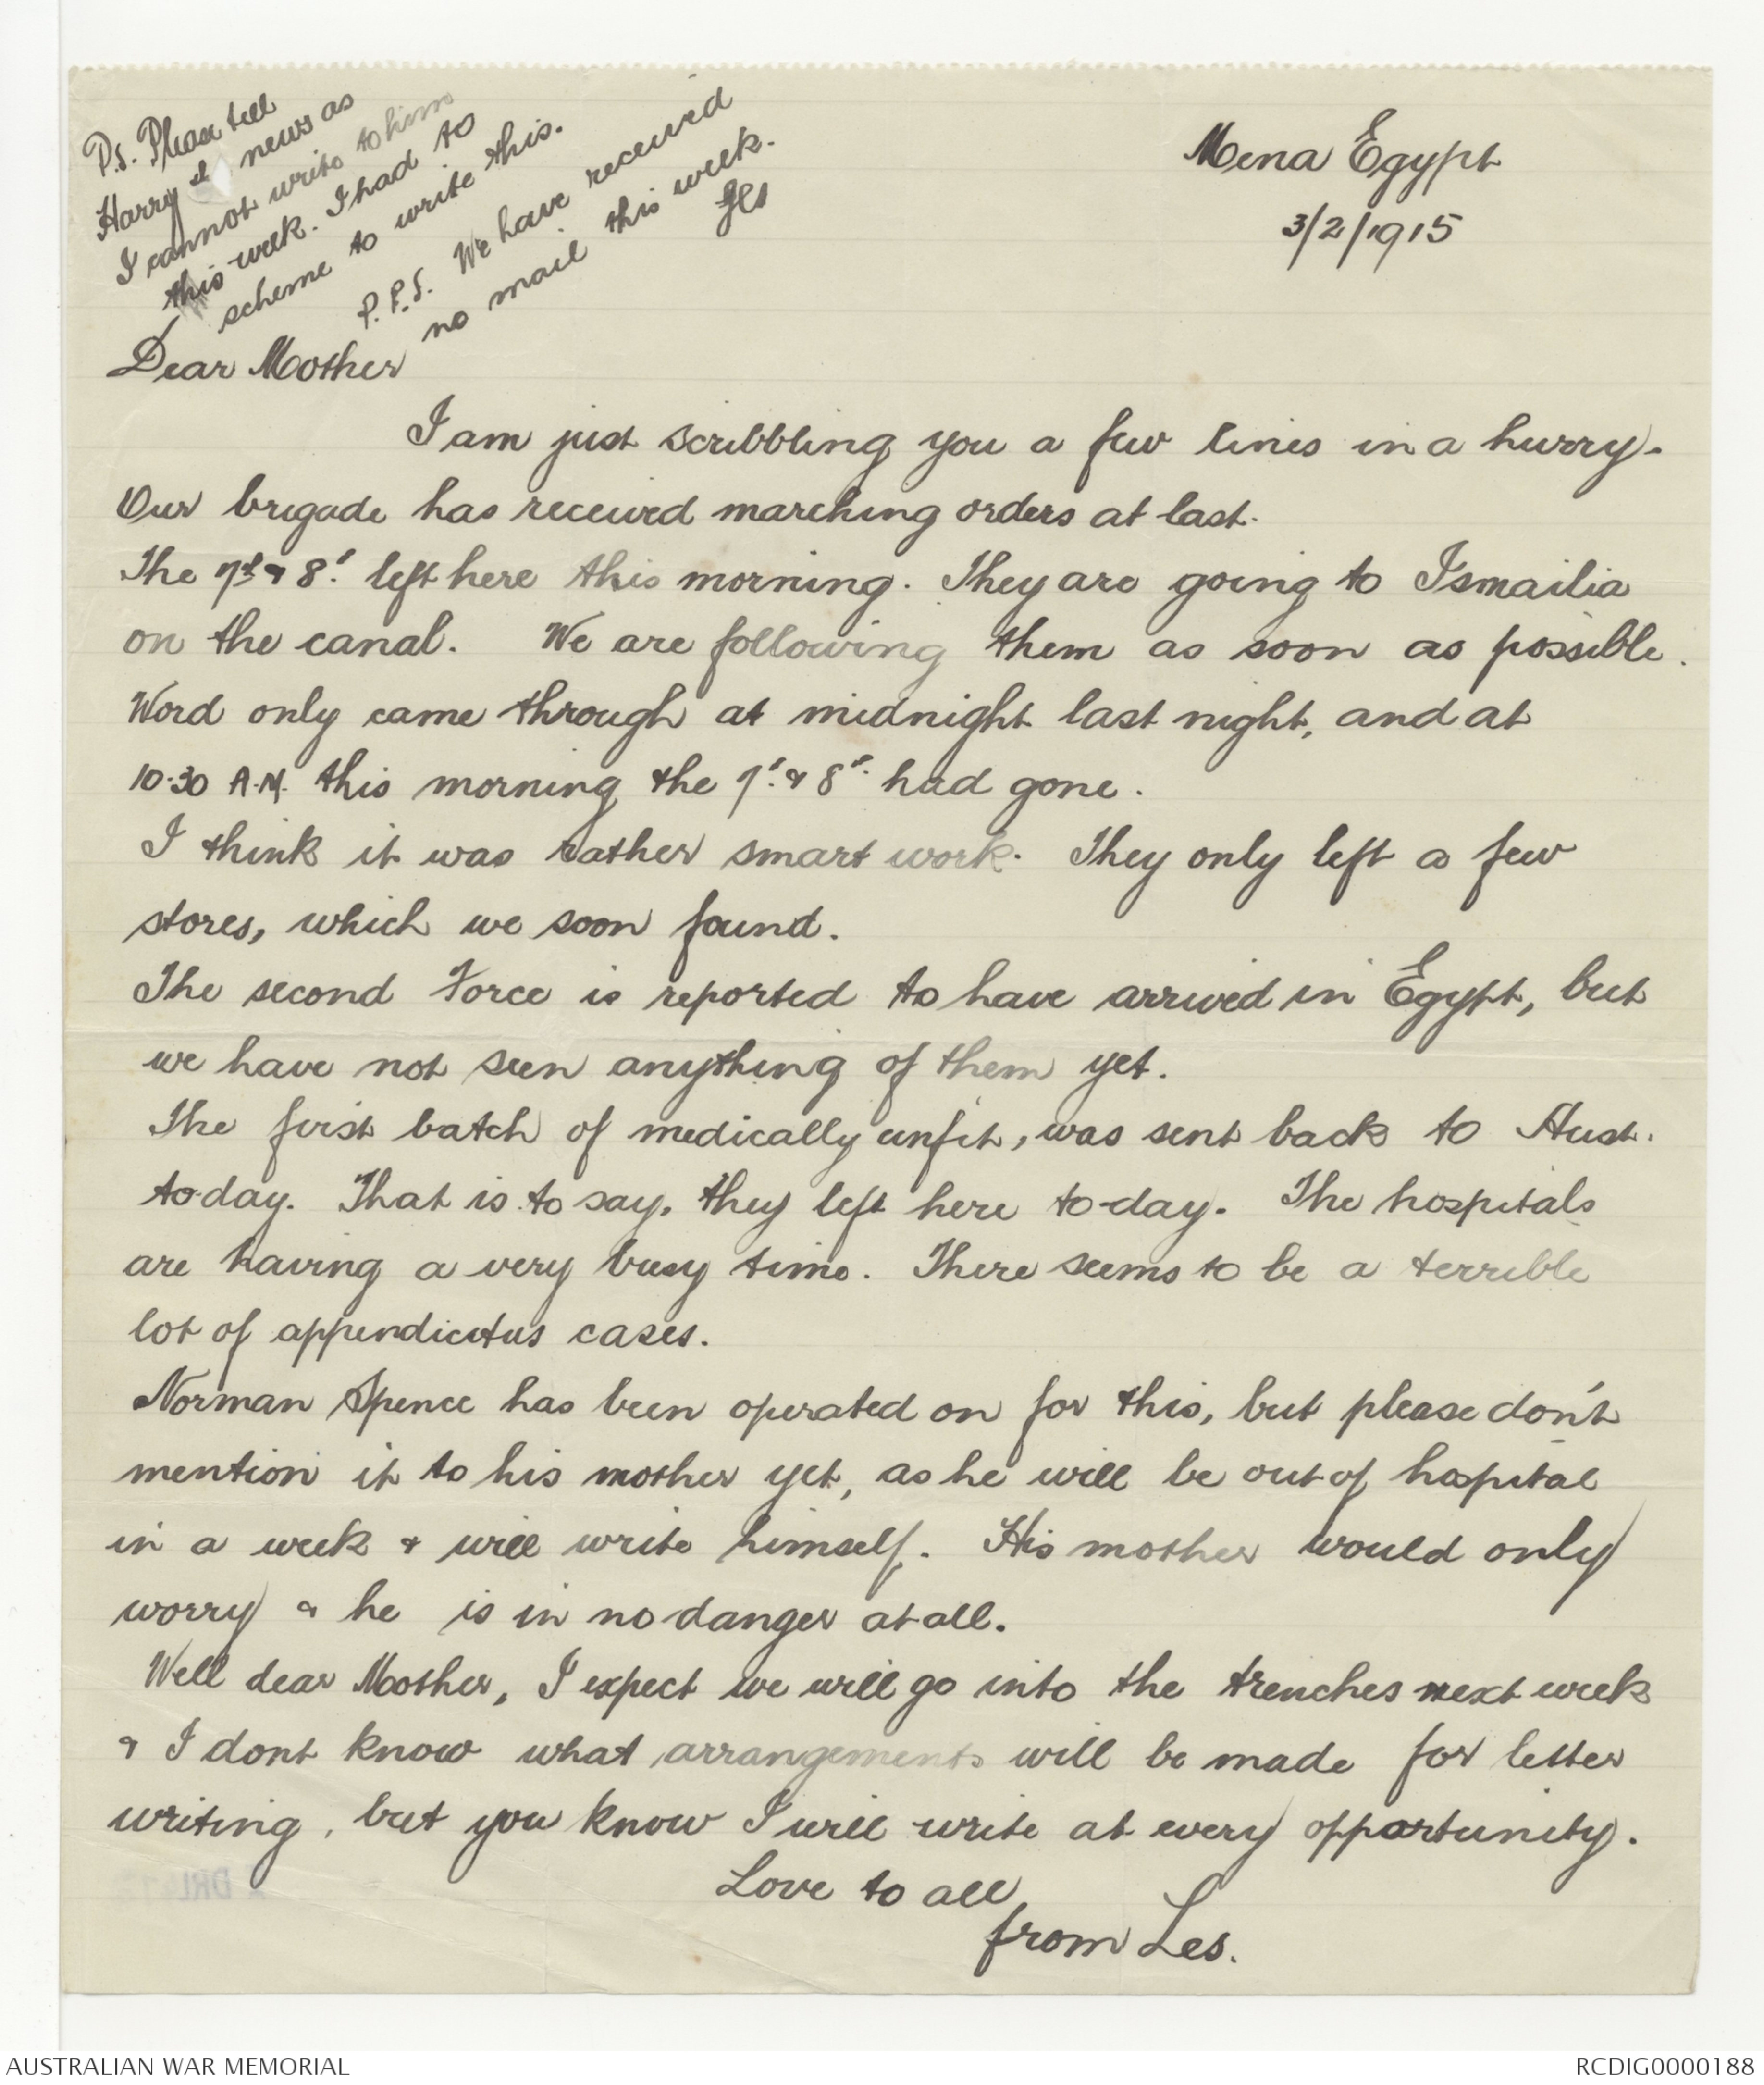 P.S. Please tell
Harry news as
I cannot write to him
this week. I had to
scheme to write this.
P.P.S. We have received
no mail this week.
Mena Egypt
3/2/1915
Dear Mother
I am just scribbling you a few lines in a hurry.
Our brigade has received marching orders at last.
The 7th & 8th left here this morning. They are going to Ismailia
on the canal. We are following them as soon as possible.
Word only came through at midnight last night, and at
10.30 A.M. this morning the 7th & 8th had gone.
I think it was rather smart work. They only left a few
stores, which we soon found.
The second Force is reported to have arrived in Egypt, but
we have not seen anything of them yet.
The first batch of medically unfit, was sent back to Aust.
to-day. That is to say, they left here to-day. The hospitals
are having a very busy time. There seems to be a terrible
lot of appendicitus cases.
Norman Spence has been operated on for this, but please don't
mention it to his mother yet, as he will be out of hospital
in a week & will write himself. His mother would only
worry & he is in no danger at all.
Well dear Mother, I expect we will go into the trenches next week
& I dont know what arrangements will be made for letter
writing, but you know I will write at every opportunity.
Love to all,
from Les.
AUSTRALIAN WAR MEMORIAL
RCDIG0000188